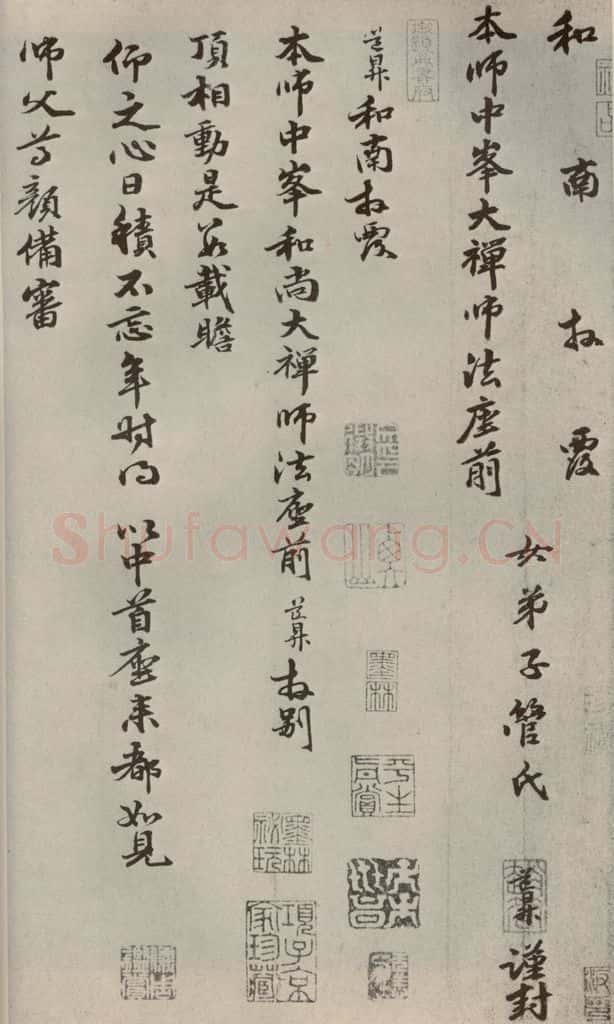 和南拜覆
本师中峯大禅师法座前
女弟子管氏道昇謹封
道昇和南拜覆
本师中峯和尚大禅师法座前道昇拜别
頂相動是数載瞻
仰之心日積不忘年时得以中首座来都如見
师父尊顔備審
墨林
墨林祕玩
項子京家珍藏
Shufawang.CN